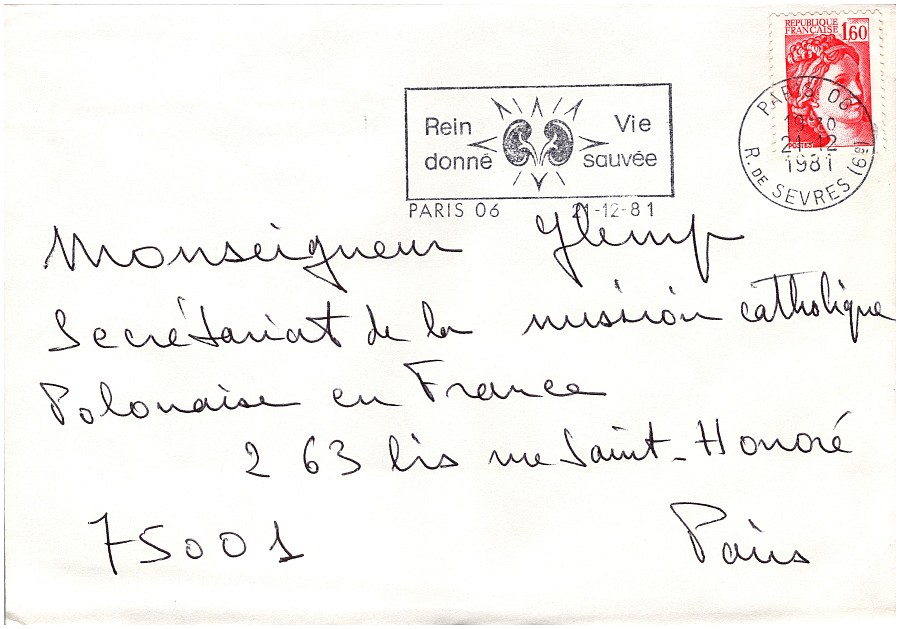 REPUBLIQUE
FRANÇAISE 1,60
POSTES
PARIS 06
21-12
1981
R. DE SEVRES (6e)
Rein Vie
donné sauvée
PARIS 06 21-12-81
Monseigneur Glemp
Secrétariat de la mission catholique
Polonaise en France
263 bis rue Saint-Honoré
75001 Paris